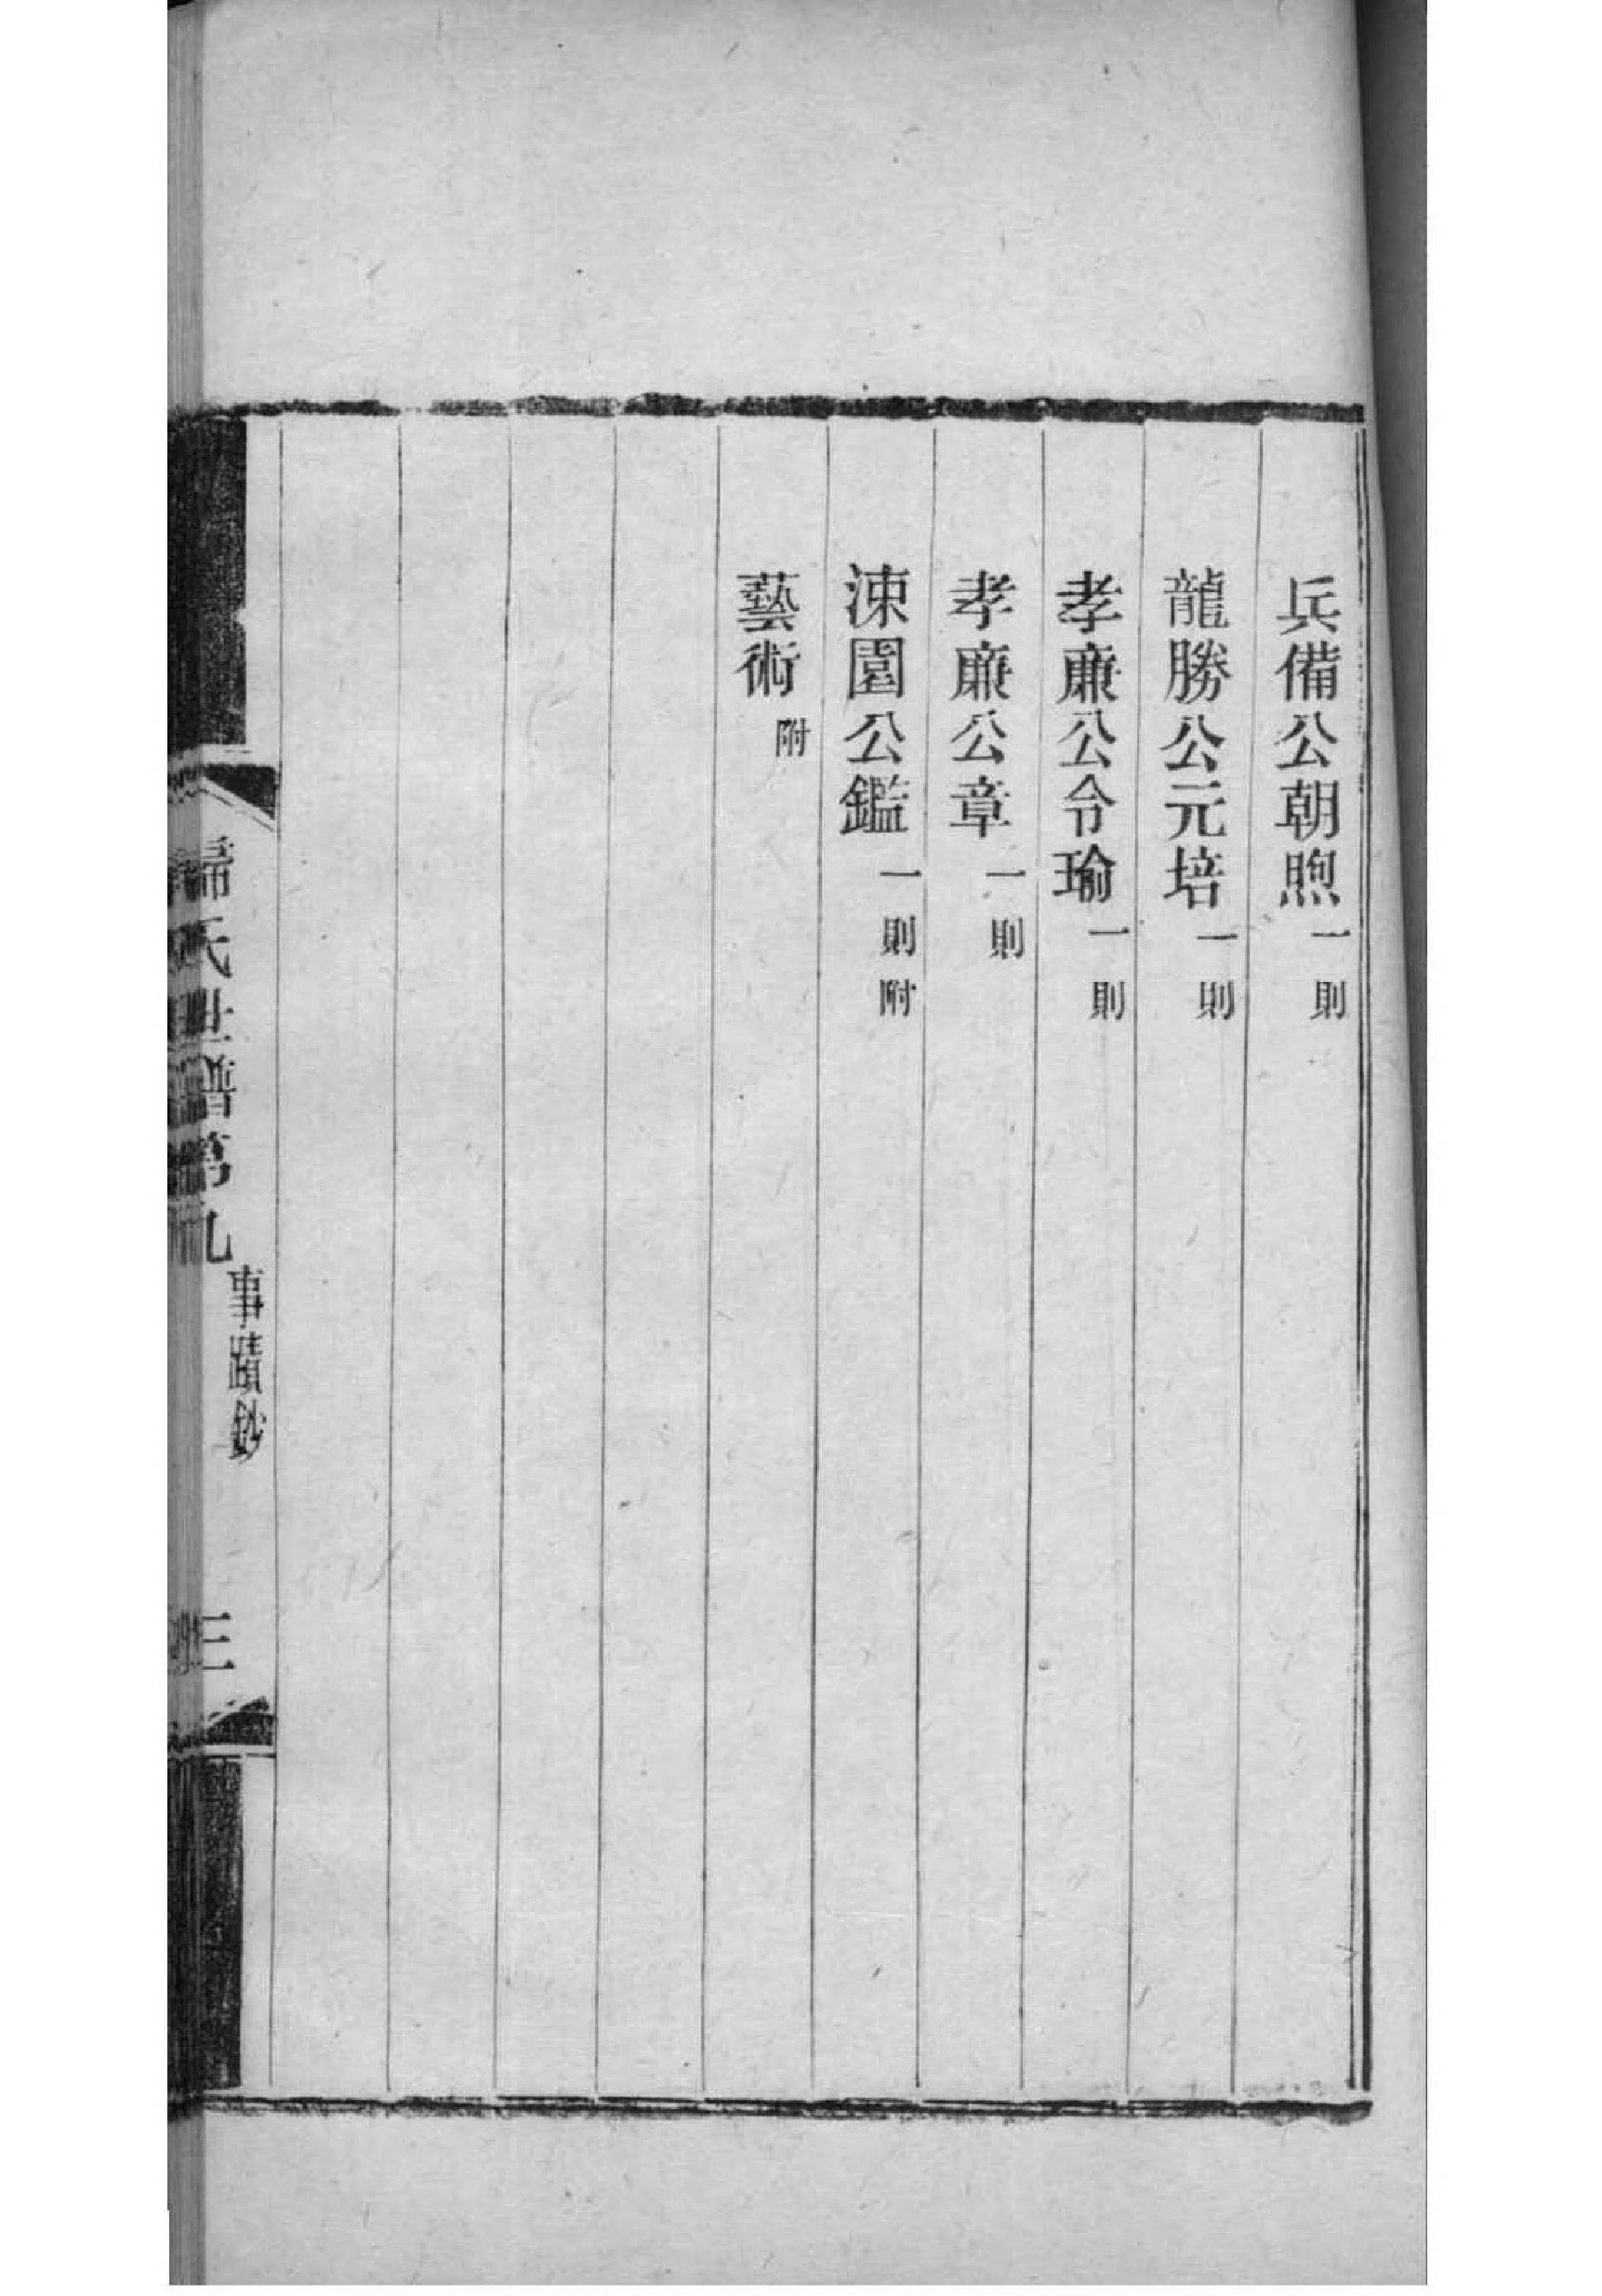 兵備公朝煦一則
龍勝公元培一則
孝廉公令瑜一則
孝廉公章一則
涑園公鑑一則附
藝術附
歸氏世譜第九 事蹟鈔 三